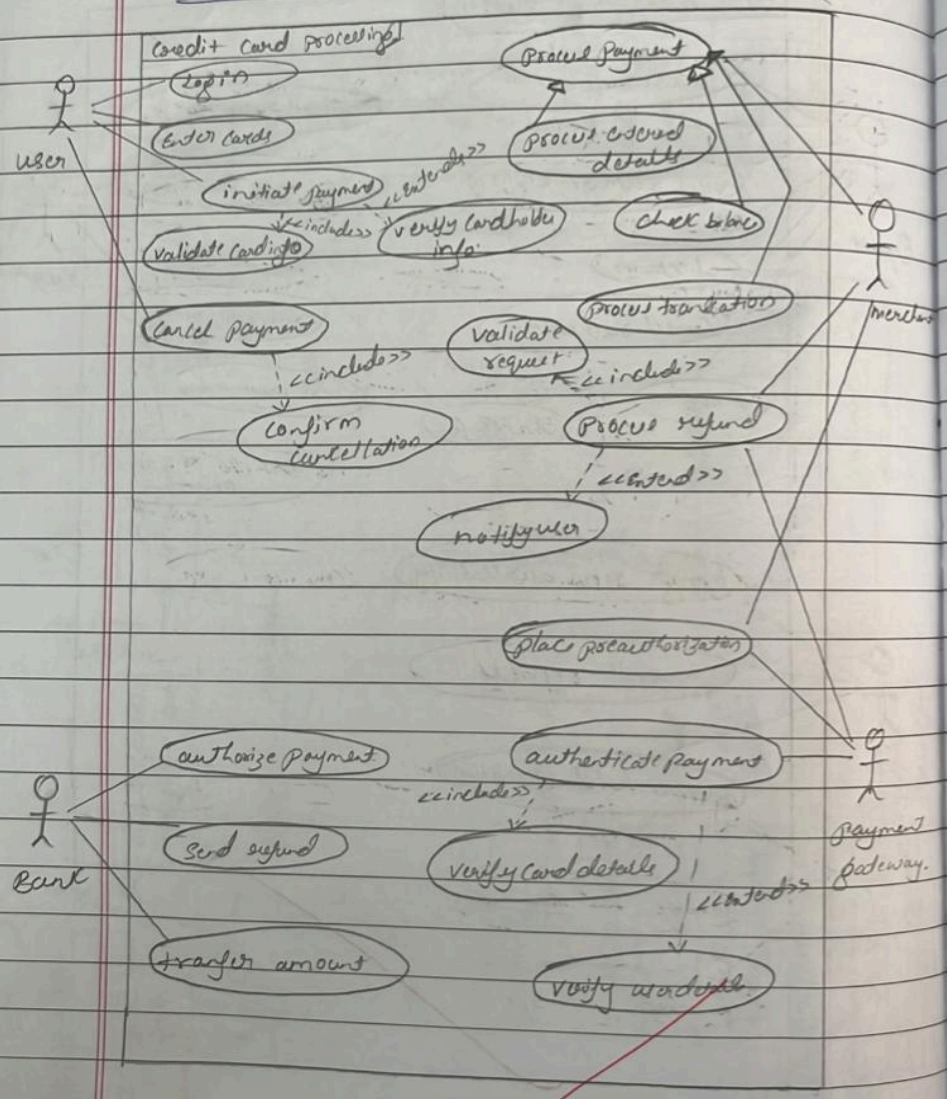 Credit Card Processing
Process Payment
Login
User
Enter Cards
Process entered
details
initiate payment
<<Extends>>
<<includes>>
verify cardholder
info.
validate card info
check balance
Merchant
Process tranction
Cancel payment
validate
request
<<include>>
<<include>>
Process refund
Confirm
cancellation
<<Extend>>
notify user
place preauthorization
authorize payment
authenticate payment
<<include>>
Send refund
Bank
verify card details
Payment
gateway.
<<extend>>
tranfer amount
verify